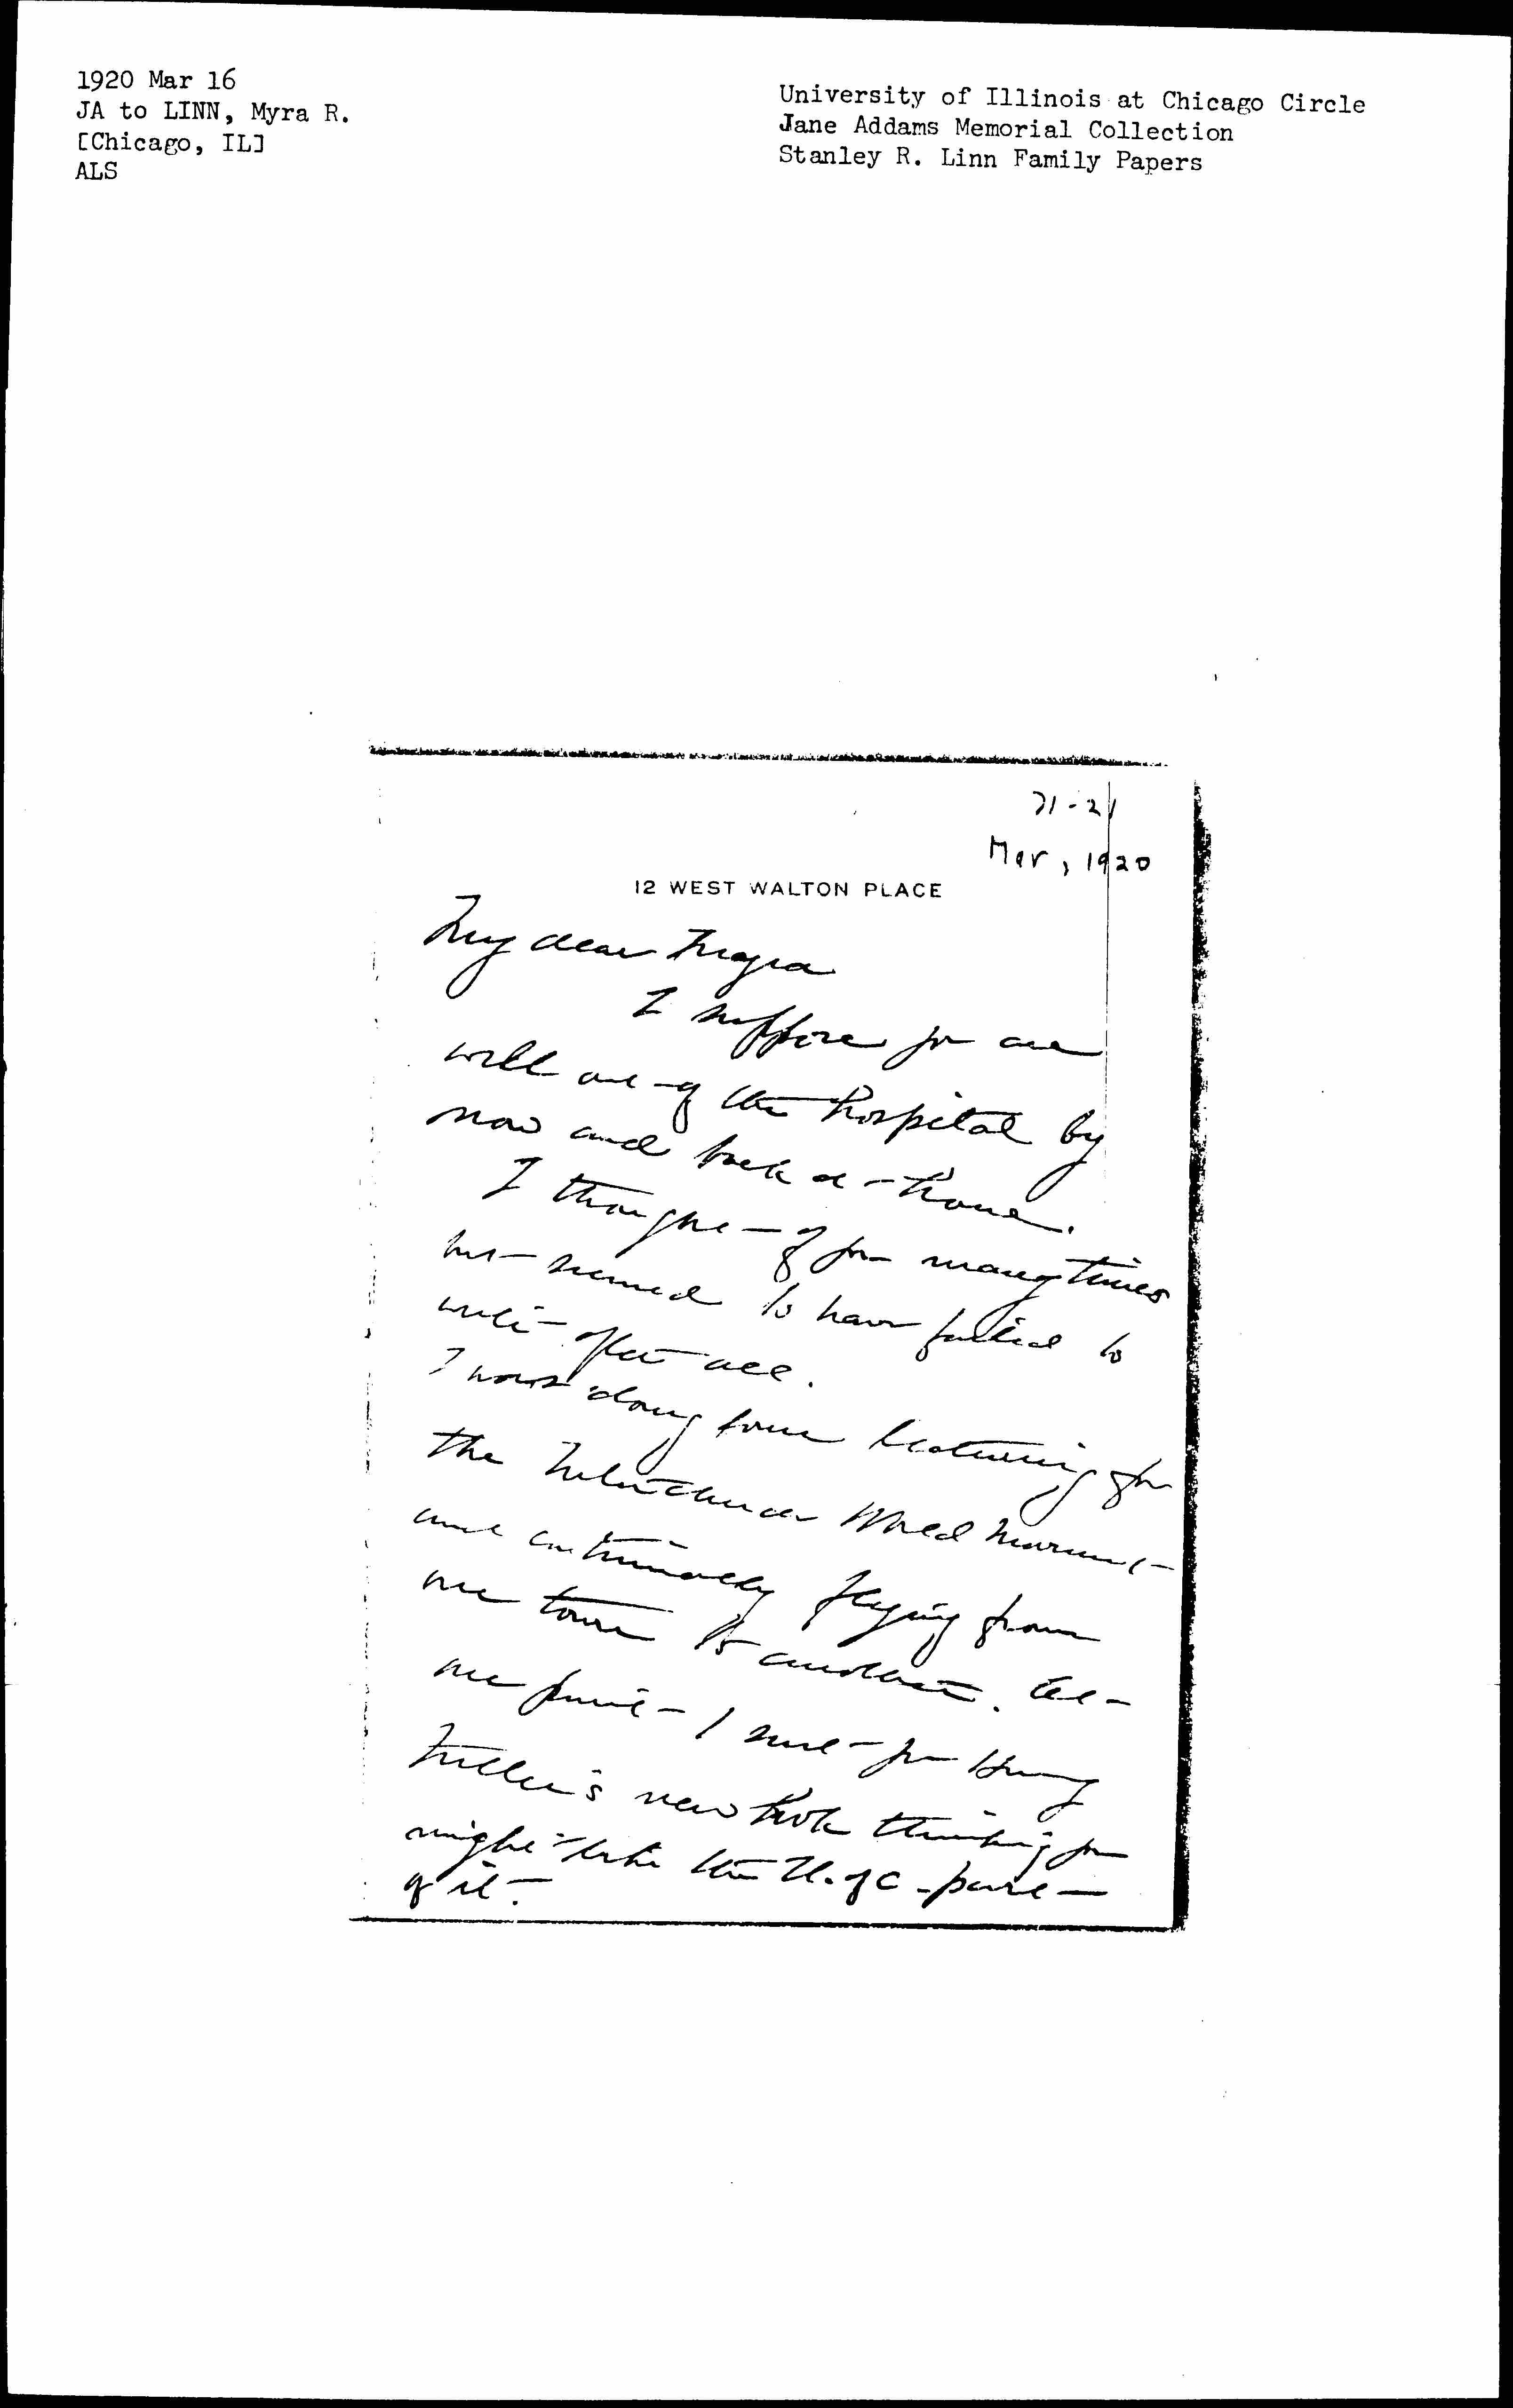 1920 Mar 16
JA to LINN, Myra R.
[Chicago, IL]
ALS
University of Illinois at Chicago Circle
Jane Addams Memorial Collection
Stanley R. Linn Family Papers
21-21
Mar, 1920
12 WEST WALTON PLACE
My dear Myra
I suppose you are
well out of the hospital by
now and back at home.
I thought of you many times
but seemed to have failed to
write after all.
I was doing some lecturing for
the Interchurch World Movement
and continually flying from
one town to another. At
one point I sent you Henry
Fuller's new book thinking you
might like the U. of C. part
of it.